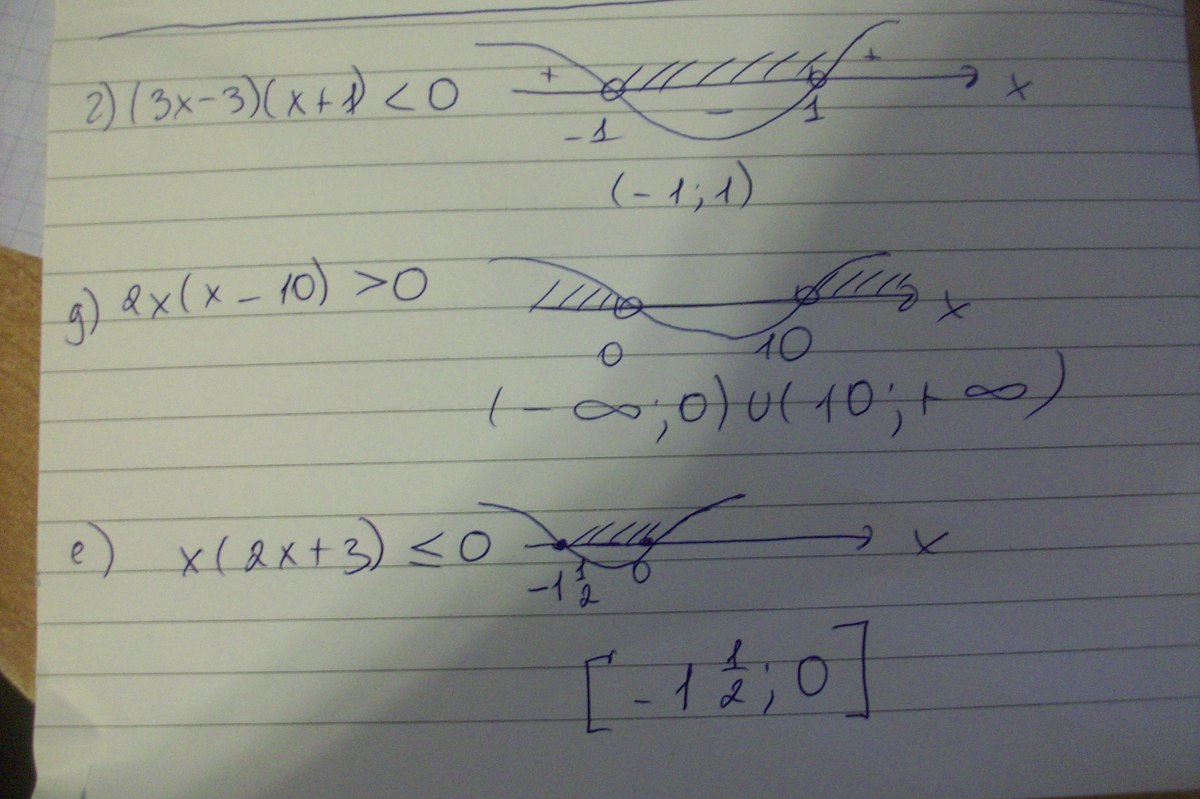 г) (3x-3)(x+1) < 0 + - + x
-1 1
(-1; 1)
g) 2x(x-10) > 0 x
0 10
(-∞; 0) ∪ (10; +∞)
e) x(2x+3) ≤ 0 x
-1 1/2 0
[-1 1/2; 0]